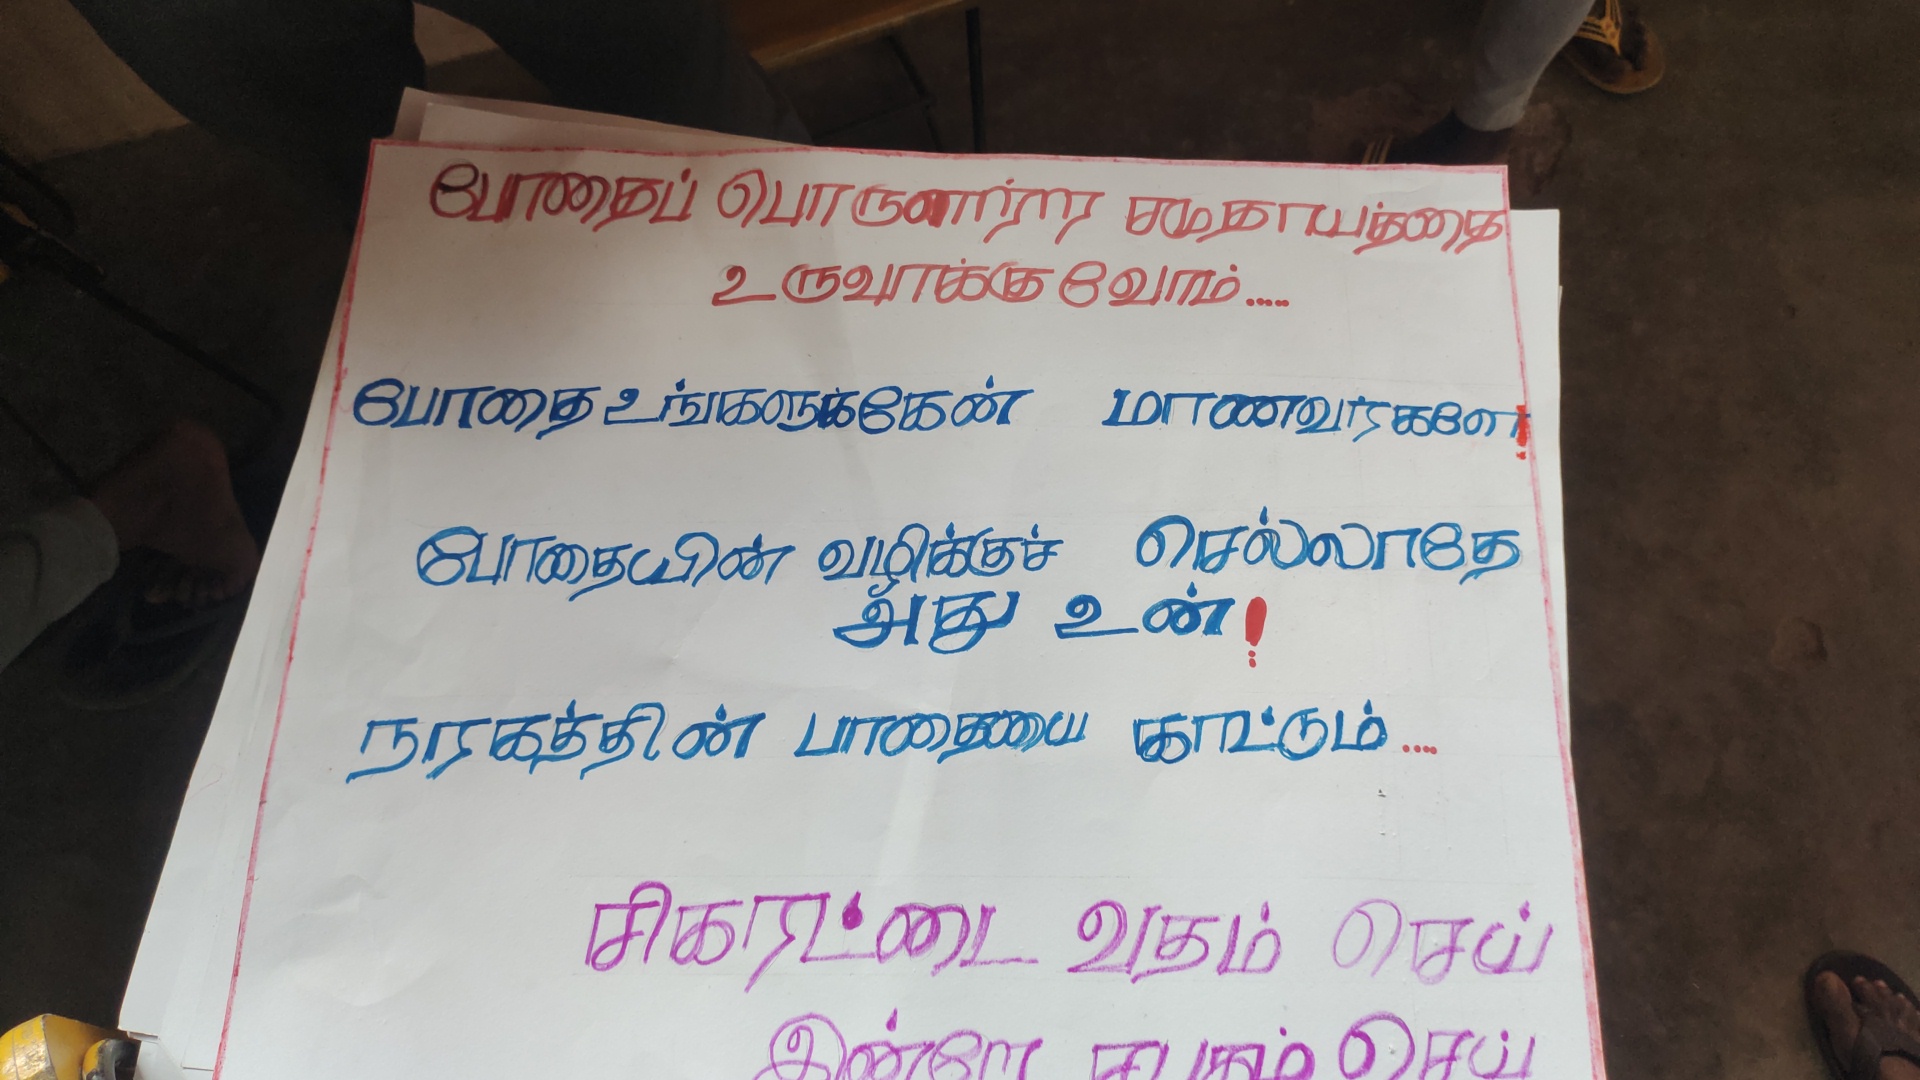 போதைப் பொருளற்ற சமுதாயத்தை
உருவாக்குவோம்.....
போதை உங்களுக்கேன் மாணவர்களே!
போதையின் வழிக்குச் செல்லாதே
அது உன்!
நரகத்தின் பாதையை காட்டும்....
சிகரட்டை வதம் செய்
இன்றே சபதம் செய்